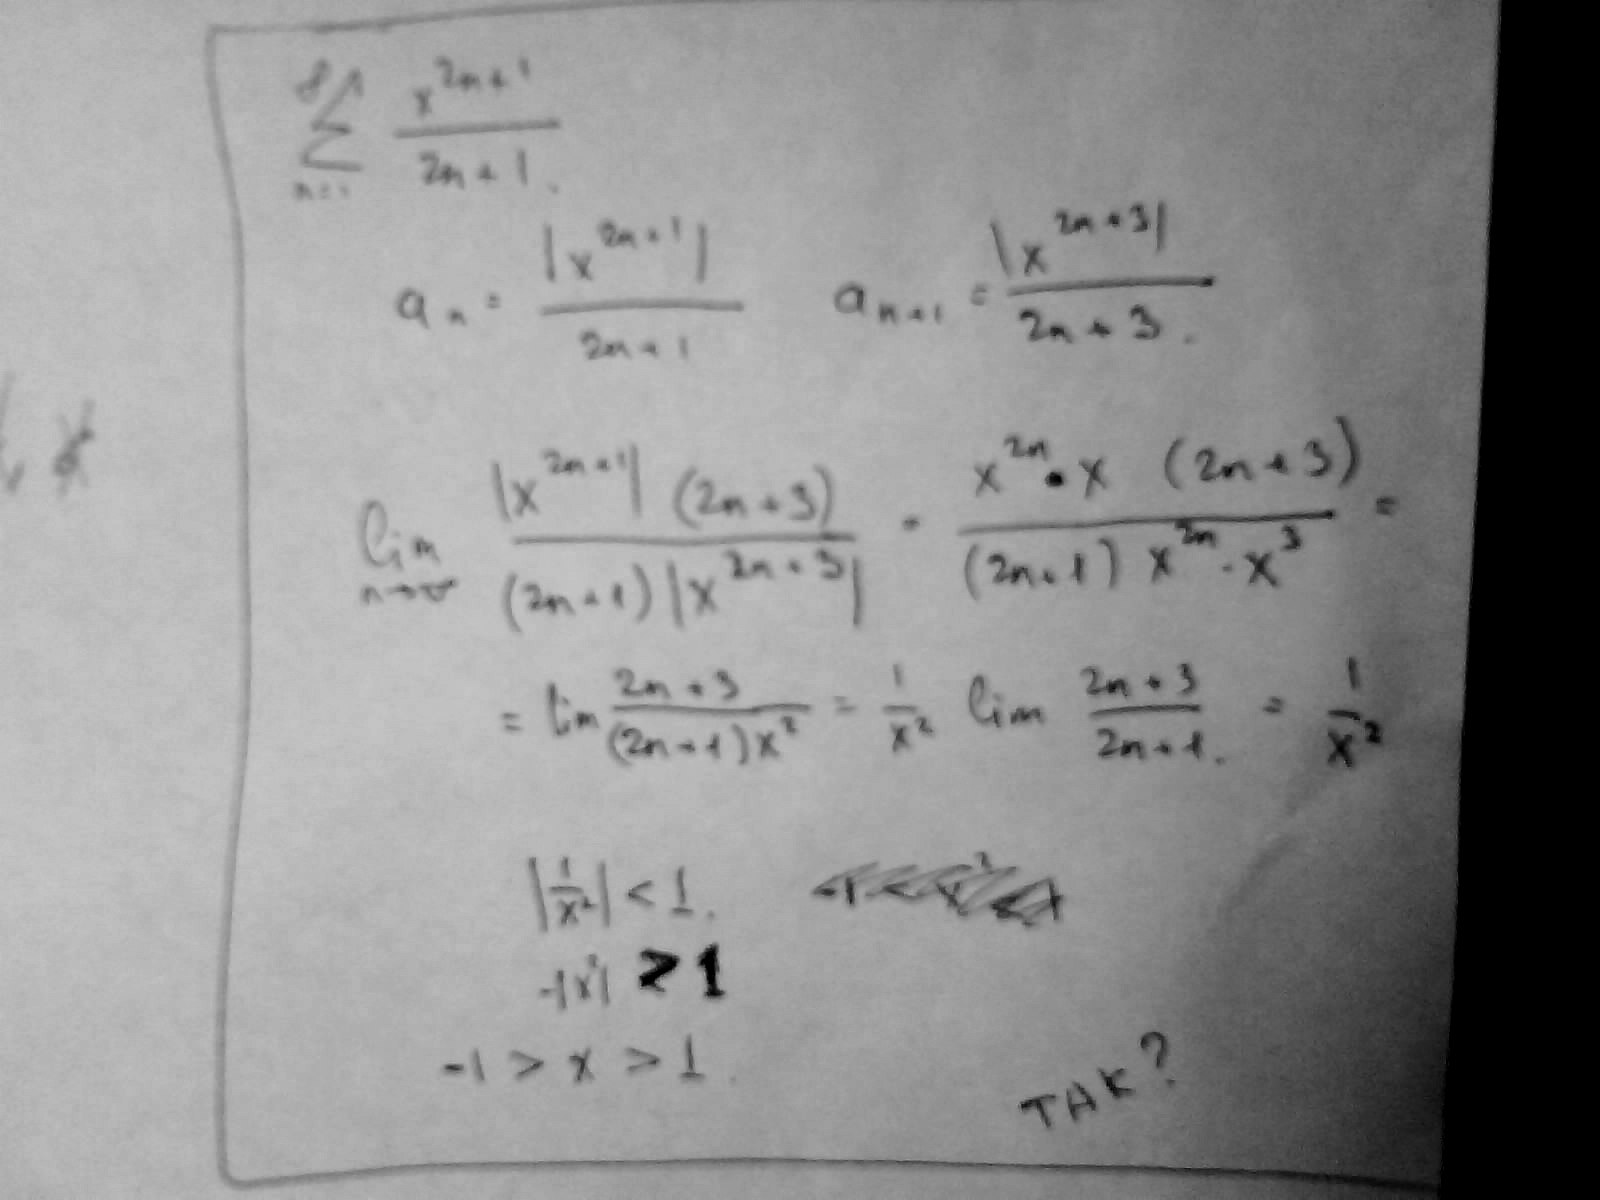 ∞ Σ n=1 x^{2n+1} / 2n+1.
a_n = |x^{2n+1}| / 2n+1 a_{n+1} = |x^{2n+3}| / 2n+3.
lim n→∞ |x^{2n+1}| (2n+3) / (2n+1) |x^{2n+3}| = x^{2n} · x (2n+3) / (2n+1) x^{2n} · x^3 =
= lim 2n+3 / (2n+1)x^2 = 1/x^2 lim 2n+3 / 2n+1. = 1/x^2
|1/x^2| < 1.
-|x^2| > 1
-1 > x > 1.
ТАК?